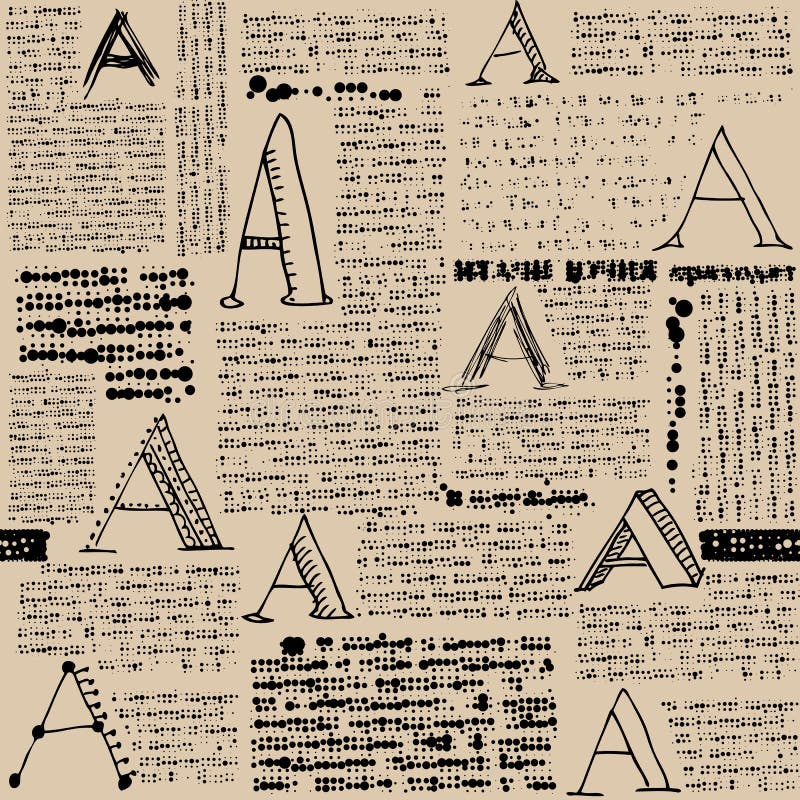 A
A
A
A
A
A
A
A
A
A